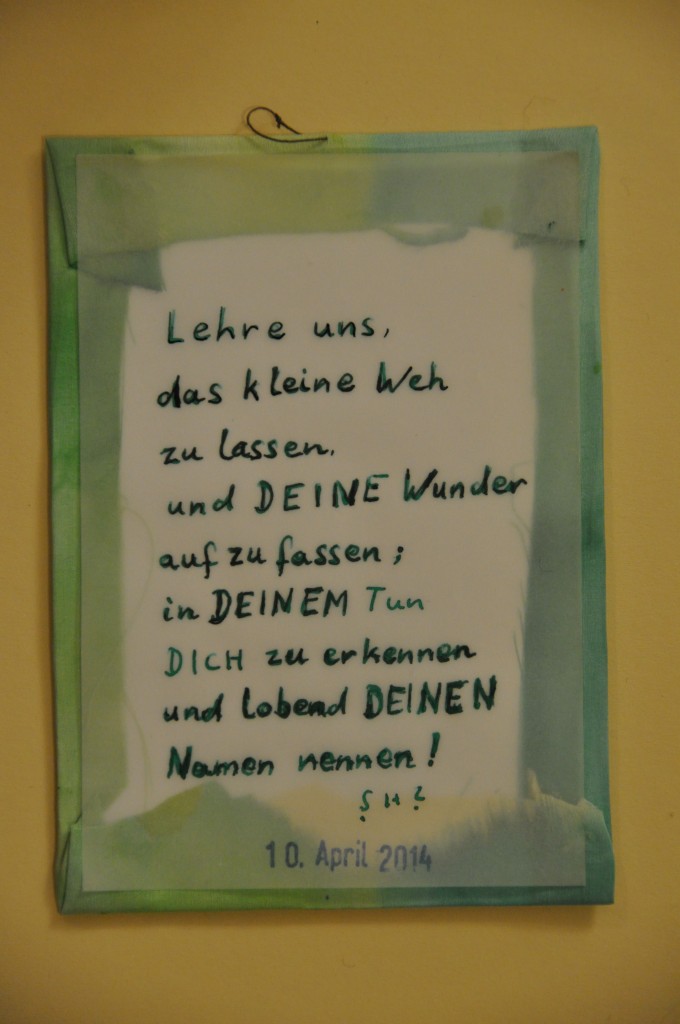 Lehre uns,
das kleine Weh
zu lassen,
und DEINE Wunder
aufzufassen;
in DEINEM Tun
DICH zu erkennen
und lobend DEINEN
Namen nennen!
10. April 2014